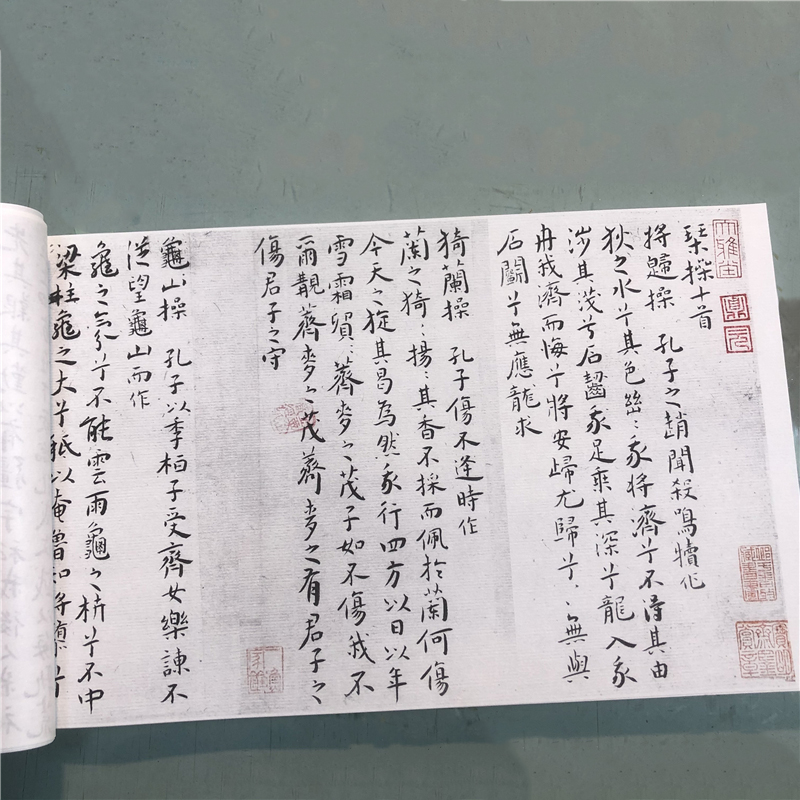 琴操十首
将歸操 孔子之趙聞殺鳴犢作
狄之水兮其色幽〻我将濟兮不得其由
涉其淺兮石齧我足乘其深兮龍入我
舟我濟而悔兮將安歸尤歸兮〻〻無與
石鬬兮無應龍求
猗蘭操 孔子傷不逢時作
蘭之猗〻揚〻其香不採而佩於蘭何傷
今天之旋其曷為然我行四方以日以年
雪霜貿〻薺麥之茂子如不傷我不
爾覯薺麥之茂薺麥之有君子之
傷君子之守
龜山操 孔子以季桓子受齊女樂諫不
從望龜山而作
龜之氛兮不能雲雨龜之枿兮不中
梁柱龜之大兮祇以奄魯知将隳兮